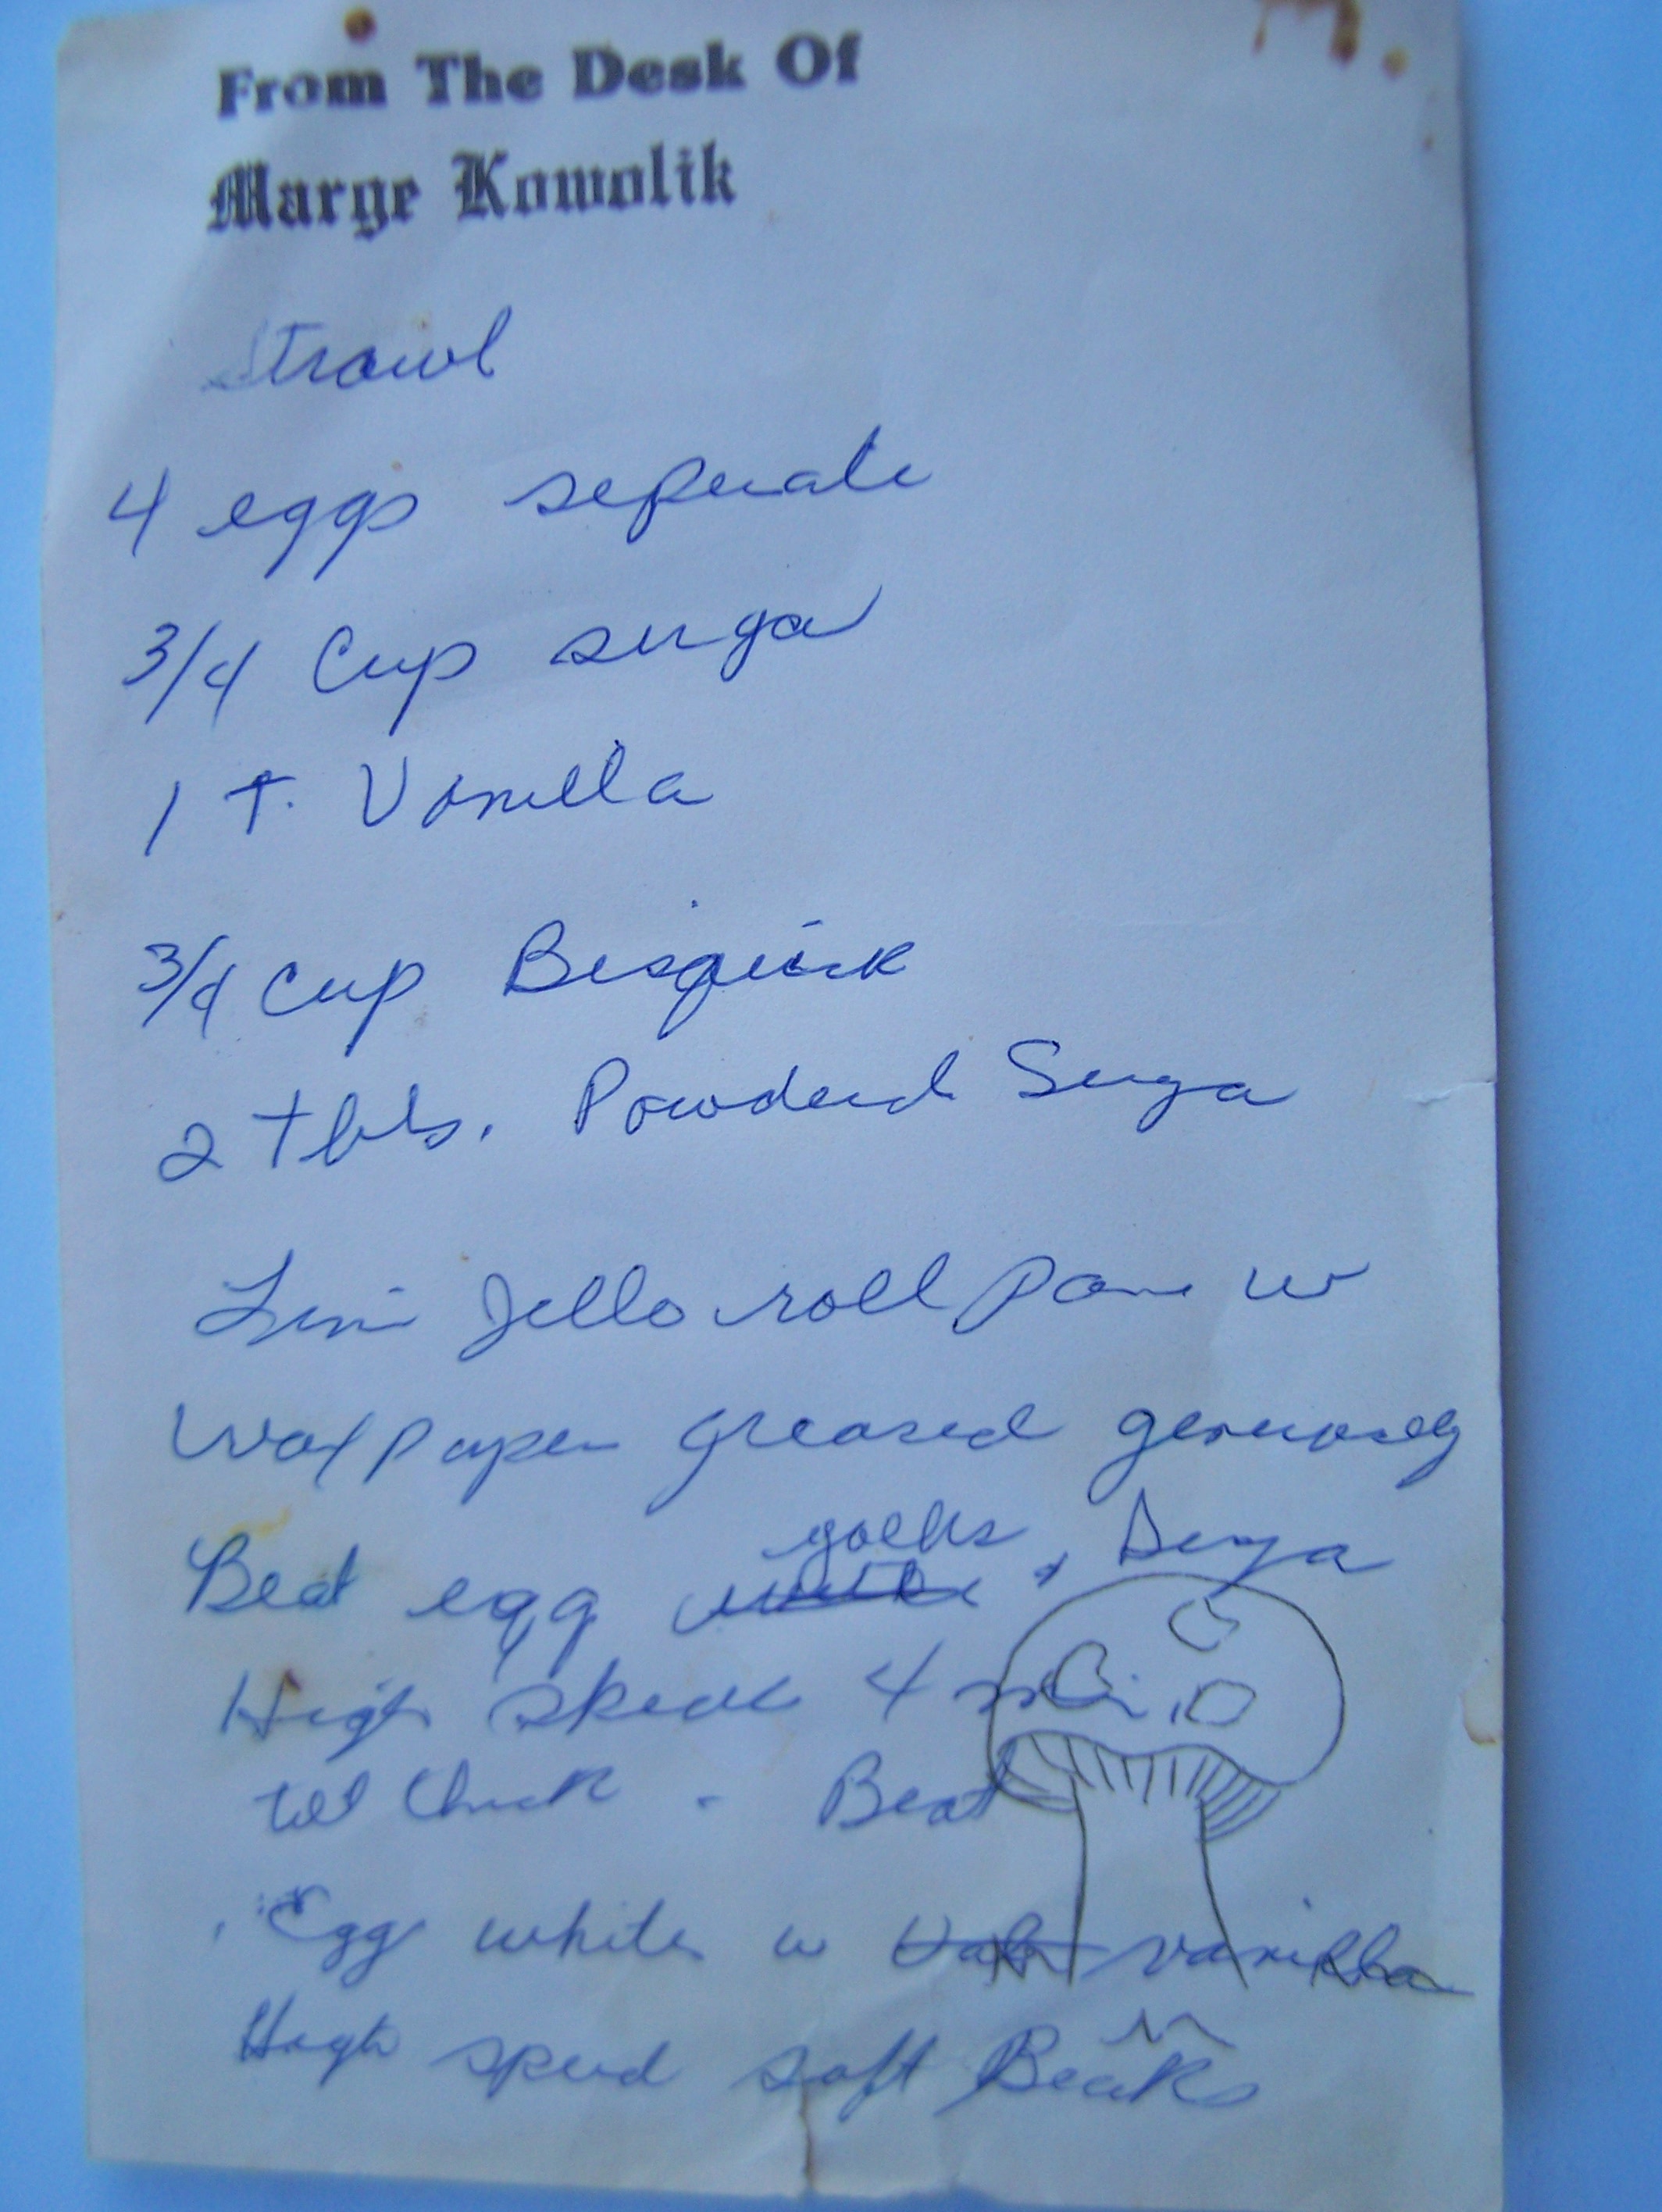 From The Desk Of
Marge Kowolik
Strawl
4 eggs seperate
3/4 Cup suga
1 T. Vanilla
3/4 Cup Bisquick
2 Tbls. Powderd Suga
Line Jello roll pan w
Wax paper greased generously
Beat egg yolks + Suga
High speed 4 min.
till thick - Beat
Egg white w vanilla
High speed soft Beaks